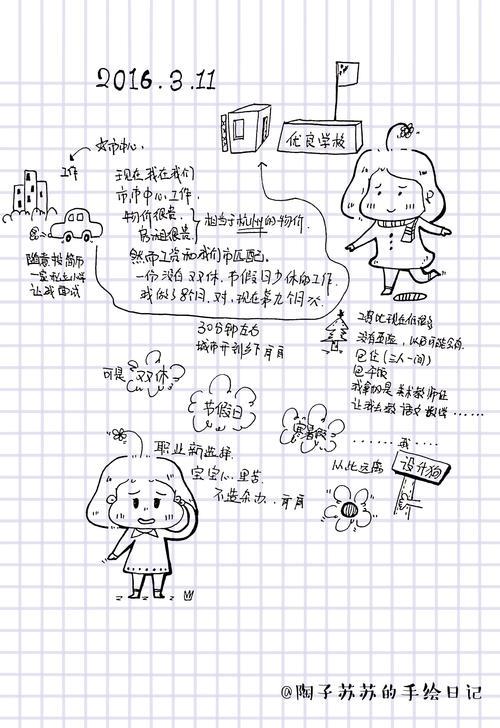 2016.3.11
优良学校
在市中心.
工作
现在我在我们
市市中心工作.
物价很贵.
房租很贵.
相当于杭州的物价.
然而工资和我们市匹配.
一份没有双休.节假日少休的工作.
我做了8个月.对.现在第九个月次.
随意投简历
一家私立小学
让我面试
30分钟左右
城市开到乡下
工资比现在低很多
没有五险,以后可能会有.
包住(三人一间)
包午饭
我拿的是美术教师证
让我去教语文数学......
可是
双休
节假日
寒暑假
......我....
从此远离
设计狗
职业新选择.
宝宝心里苦.
不造杂办.
@陶子苏苏的手绘日记